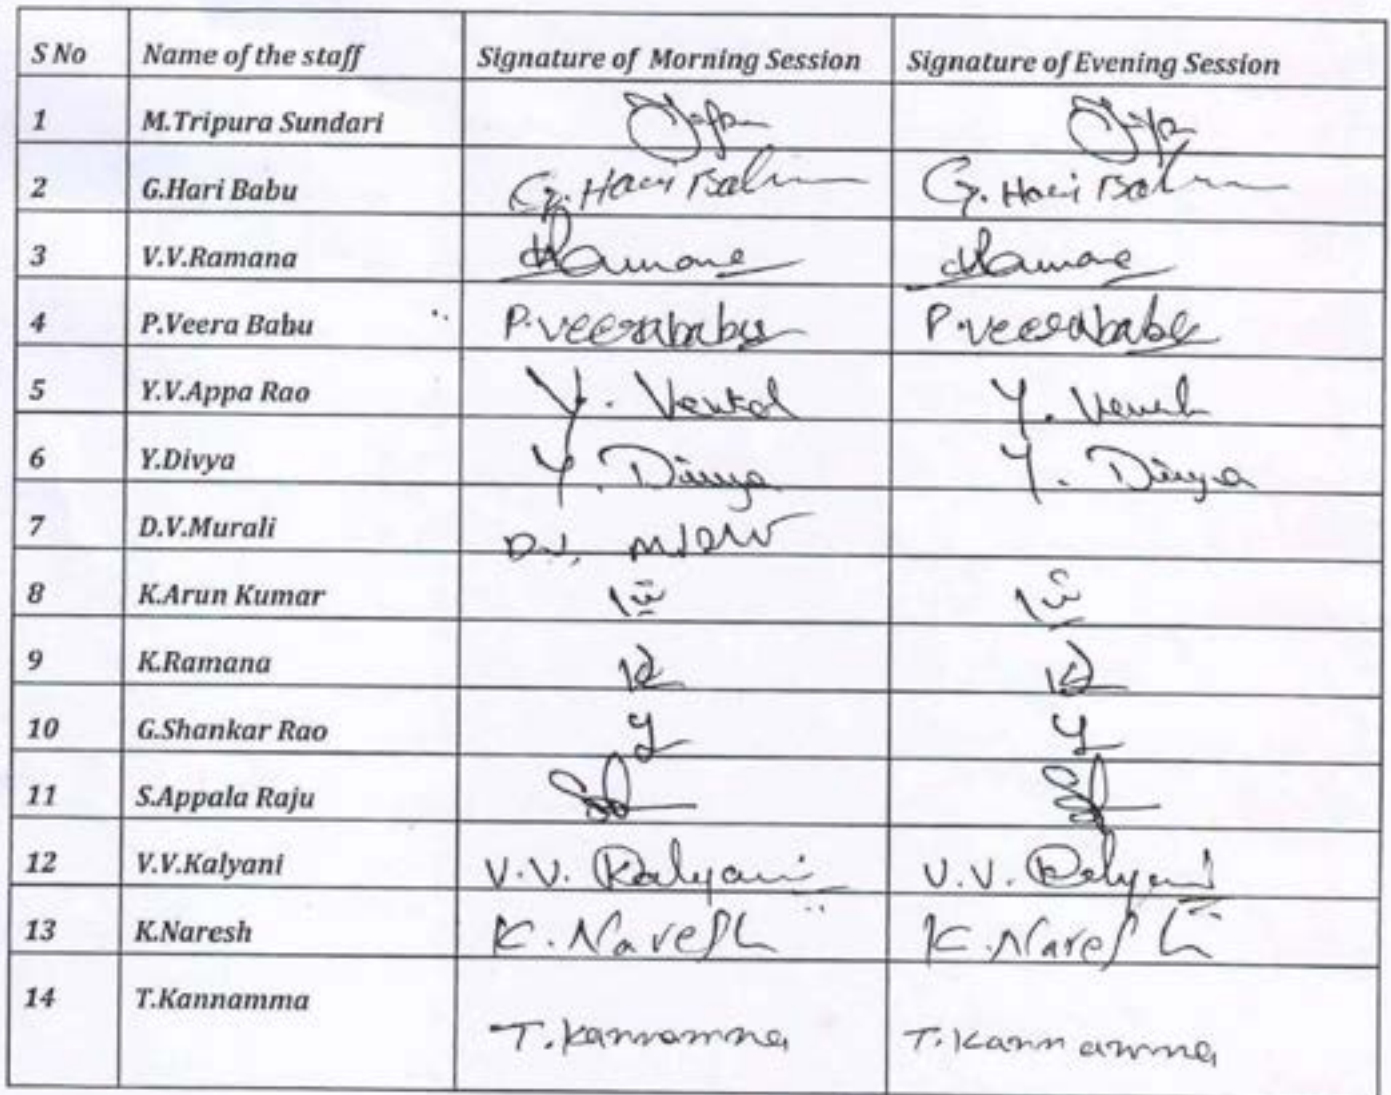 S No Name of the staff Signature of Morning Session Signature of Evening Session
1 M.Tripura Sundari
2 G.Hari Babu G. Hari Babu G. Hari Babu
3 V.V.Ramana
4 P.Veera Babu P.veerababu P.veerababu
5 Y.V.Appa Rao Y. Y.
6 Y.Divya Y. Divya Y. Divya
7 D.V.Murali D.V.
8 K.Arun Kumar
9 K.Ramana
10 G.Shankar Rao
11 S.Appala Raju
12 V.V.Kalyani V.V. Kalyani V.V. Kalyani
13 K.Naresh K. Naresh K. Naresh
14 T.Kannamma
T.Kannamma T.Kannamma